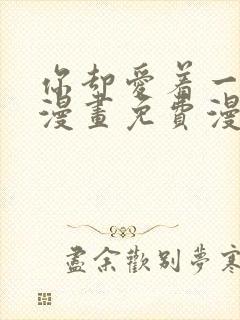 你却愛着一
漫畫免費漫
盡余歡别夢寒